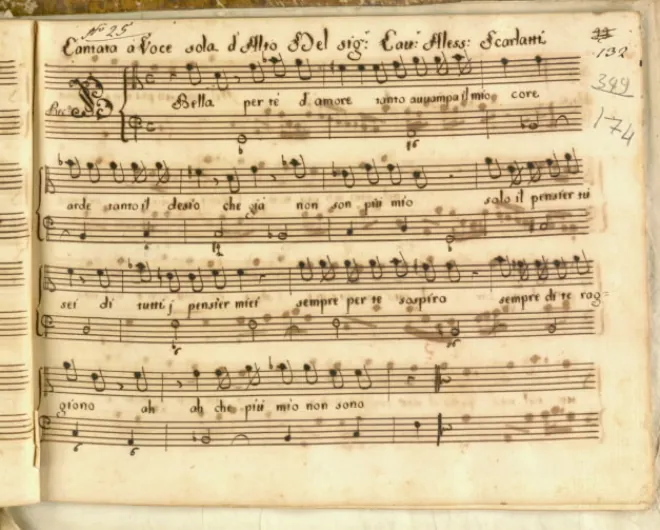 No 25
Cantata à Voce sola d'Alto Del sig.r Cau.r Aless: Scarlatti
132
389
174
Rec.o
Bella per tè d'amore tanto auuampa il mio core
arde tanto il desio che già non son più mio solo il pensier tu
sei di tutti j pensier miei sempre per te sospiro sempre di te rag=
giono ah ah che più mio non sono